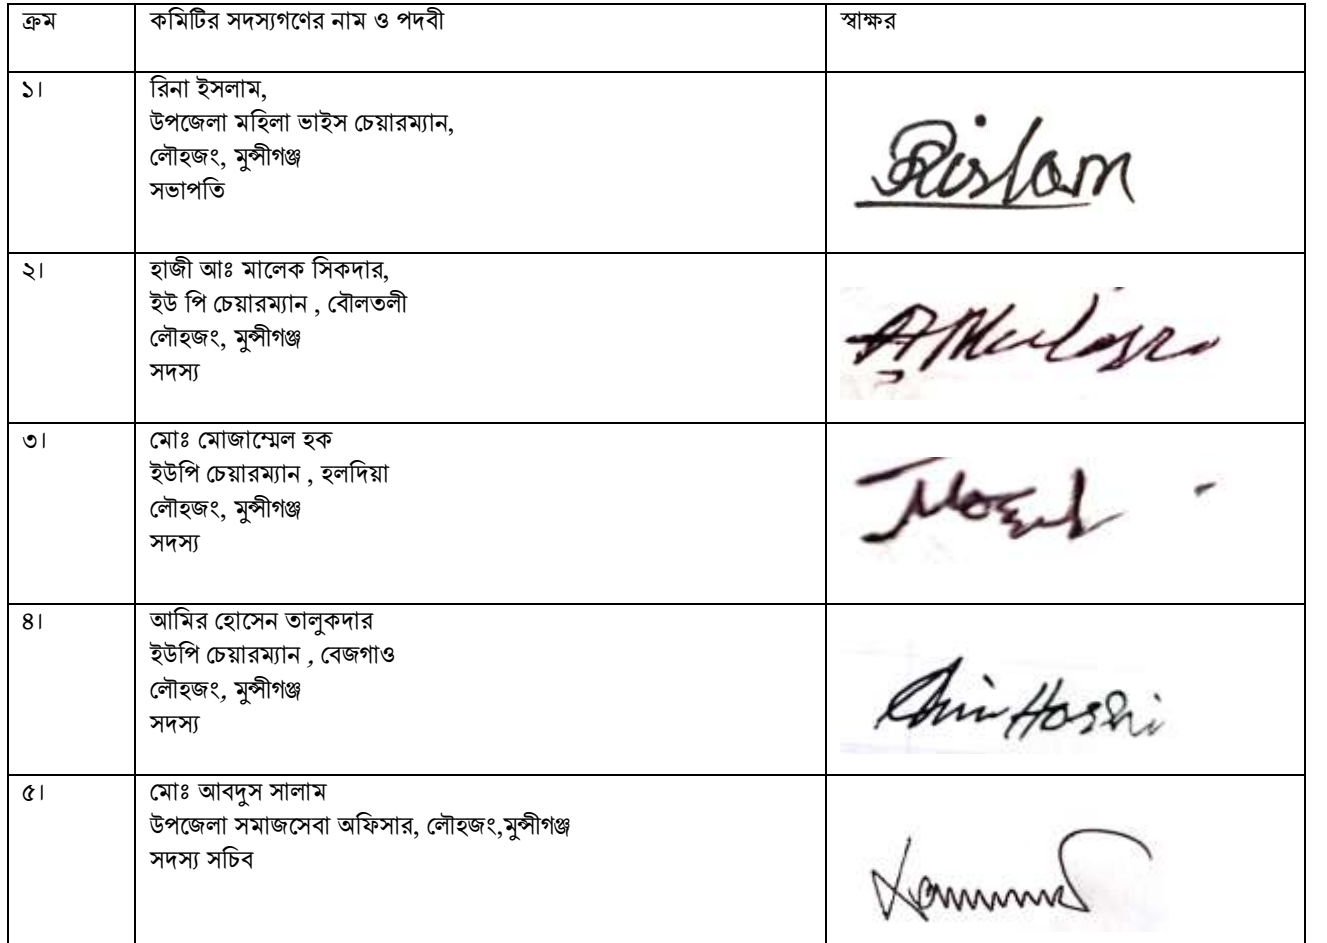 ক্রম কমিটির সদস্যগণের নাম ও পদবী স্বাক্ষর
১। রিনা ইসলাম,
উপজেলা মহিলা ভাইস চেয়ারম্যান,
লৌহজং, মুন্সীগঞ্জ
সভাপতি
RIslam
২। হাজী আঃ মালেক সিকদার,
ইউ পি চেয়ারম্যান , বৌলতলী
লৌহজং, মুন্সীগঞ্জ
সদস্য
৩। মোঃ মোজাম্মেল হক
ইউপি চেয়ারম্যান , হলদিয়া
লৌহজং, মুন্সীগঞ্জ
সদস্য
৪। আমির হোসেন তালুকদার
ইউপি চেয়ারম্যান , বেজগাও
লৌহজং, মুন্সীগঞ্জ
সদস্য
৫। মোঃ আবদুস সালাম
উপজেলা সমাজসেবা অফিসার, লৌহজং,মুন্সীগঞ্জ
সদস্য সচিব